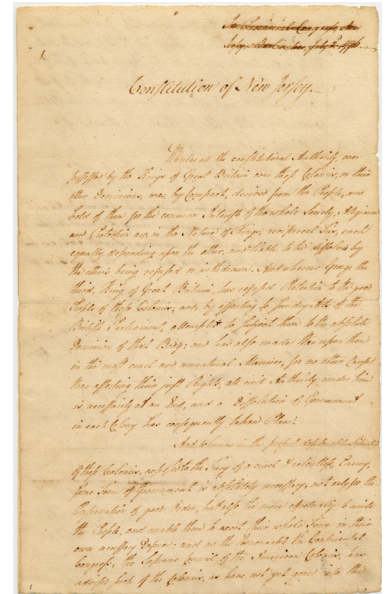 In Provincial Congress, New
Jersey, Burlington, July 2d 1776
1.
Constitution of New Jersey
Whereas all the constitutional Authority, ever
possessed by the Kings of Great Britain over these Colonies, or their
other Dominions, was, by Compact, derived from the People, and
held of them for the common Interest of the whole Society, Allegiance
and Protection are, in the Nature of Things, reciprocal Ties, each
equally depending upon the other, and liable to be dissolved by
the other's being refused or withdrawn. And whereas George the
third, King of Great Britain, has refused Protection to the good
People of these Colonies, and, by assenting to sundry Acts of the
British Parliament, attempted to subject them to the absolute
Dominion of that Body; and has also made War upon them
in the most cruel and unnatural Manner, for no other Cause
than asserting their just Rights, all civil Authority under him
is necessarily at an End, and a Dissolution of Government
in each Colony has consequently taken Place.
And whereas in the present deplorable Situation
of these Colonies, exposed to the Fury of a cruel & relentless Enemy,
some Form of Government is absolutely necessary, not only for the
Preservation of good Order, but also the more effectually to unite
the People, and enable them to exert their whole Force in their
own necessary Defence; and as the honorable the Continental
Congress, the supreme Council of the American Colonies, has
advised such of the Colonies, as have not yet gone into the